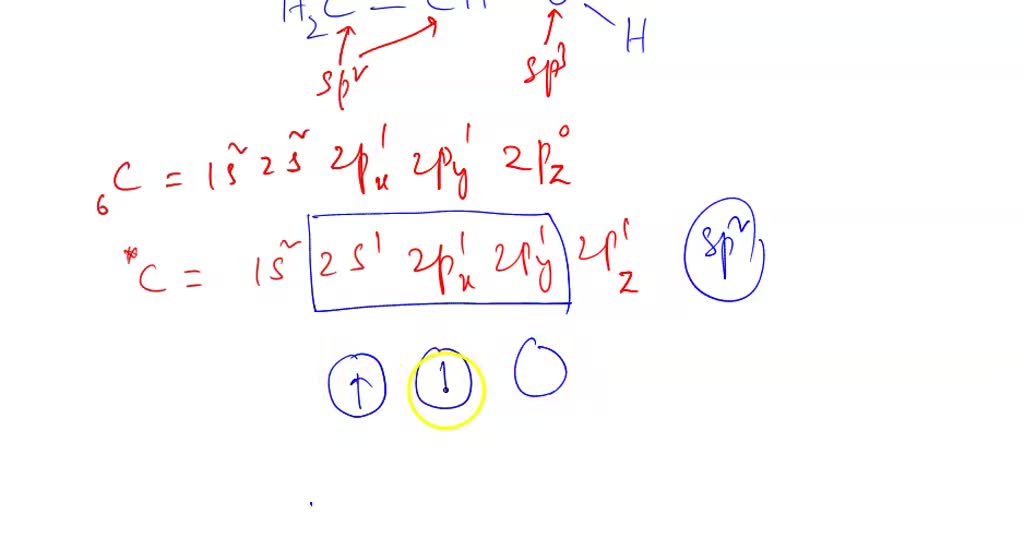 H₂C — CH O
H
sp² sp³
₆C = 1s² 2s² 2pₓ¹ 2p_y¹ 2p_z⁰
*C = 1s² 2s¹ 2pₓ¹ 2p_y¹ 2p_z¹ sp²
↑ 1